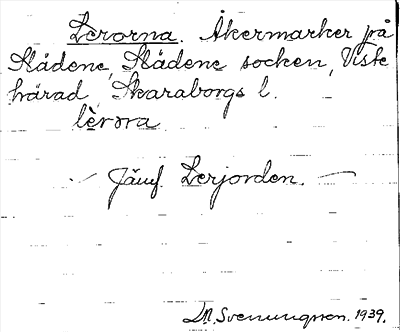 Lerorna. Åkermarker på
Slädene, Slädene socken, Viste
härad, Skaraborgs l.
lèrɷra
Jämf. Lerjorden. —
D.A. Svenungsson. 1939.